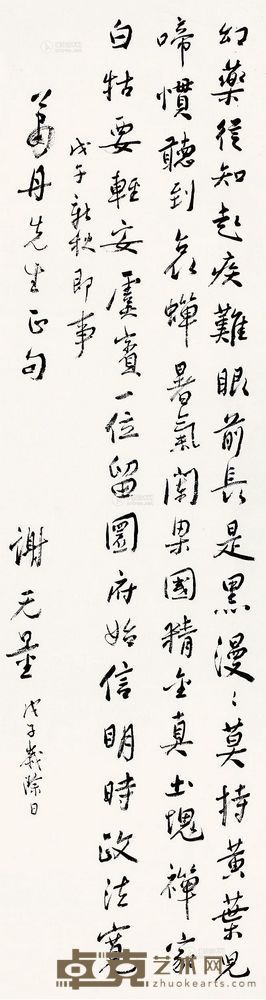 幻藥從知起疾難眼前長是黑漫〻莫持黃葉兒
啼慣聽到哀蟬暑氣闌果國精金真土塊禪家
白牯要輕安虞賓一位留圜府始信明時政法寬
戊子新秋即事
丹先生正句
謝无量 戊子歲除日
卓克艺术网
www.zhuokearts.com